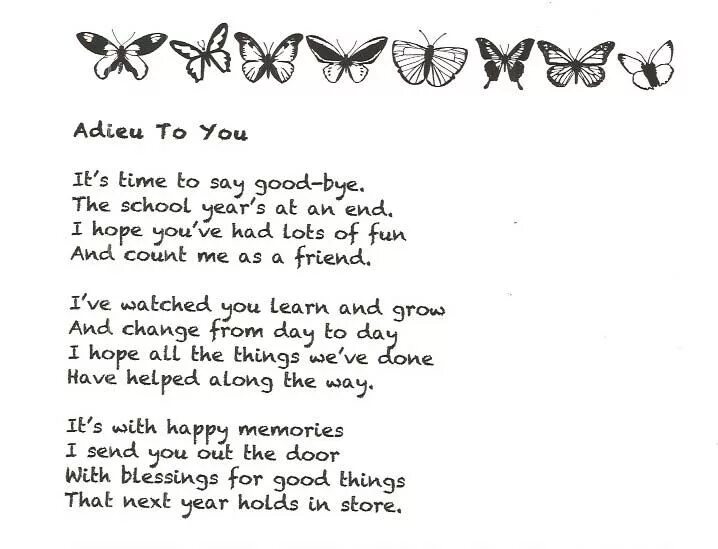 Adieu To You
It's time to say good-bye.
The school year's at an end.
I hope you've had lots of fun
And count me as a friend.
I've watched you learn and grow
And change from day to day
I hope all the things we've done
Have helped along the way.
It's with happy memories
I send you out the door
With blessings for good things
That next year holds in store.